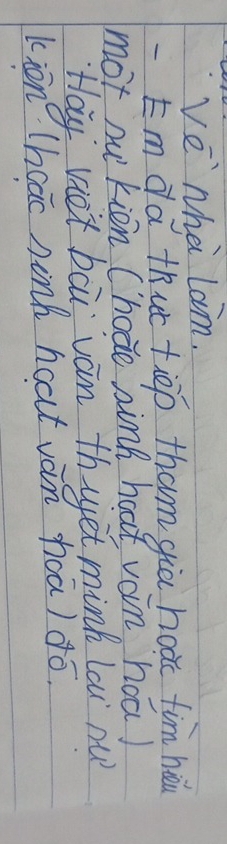 Về nhà làm.
- Em đã trực tiếp tham gia hoặc tìm hiểu
một sự kiện (hoặc sinh hoạt văn hóa)
Hãy viết bài văn thuyết minh lại sự
kiện (hoặc sinh hoạt văn hóa) đó.